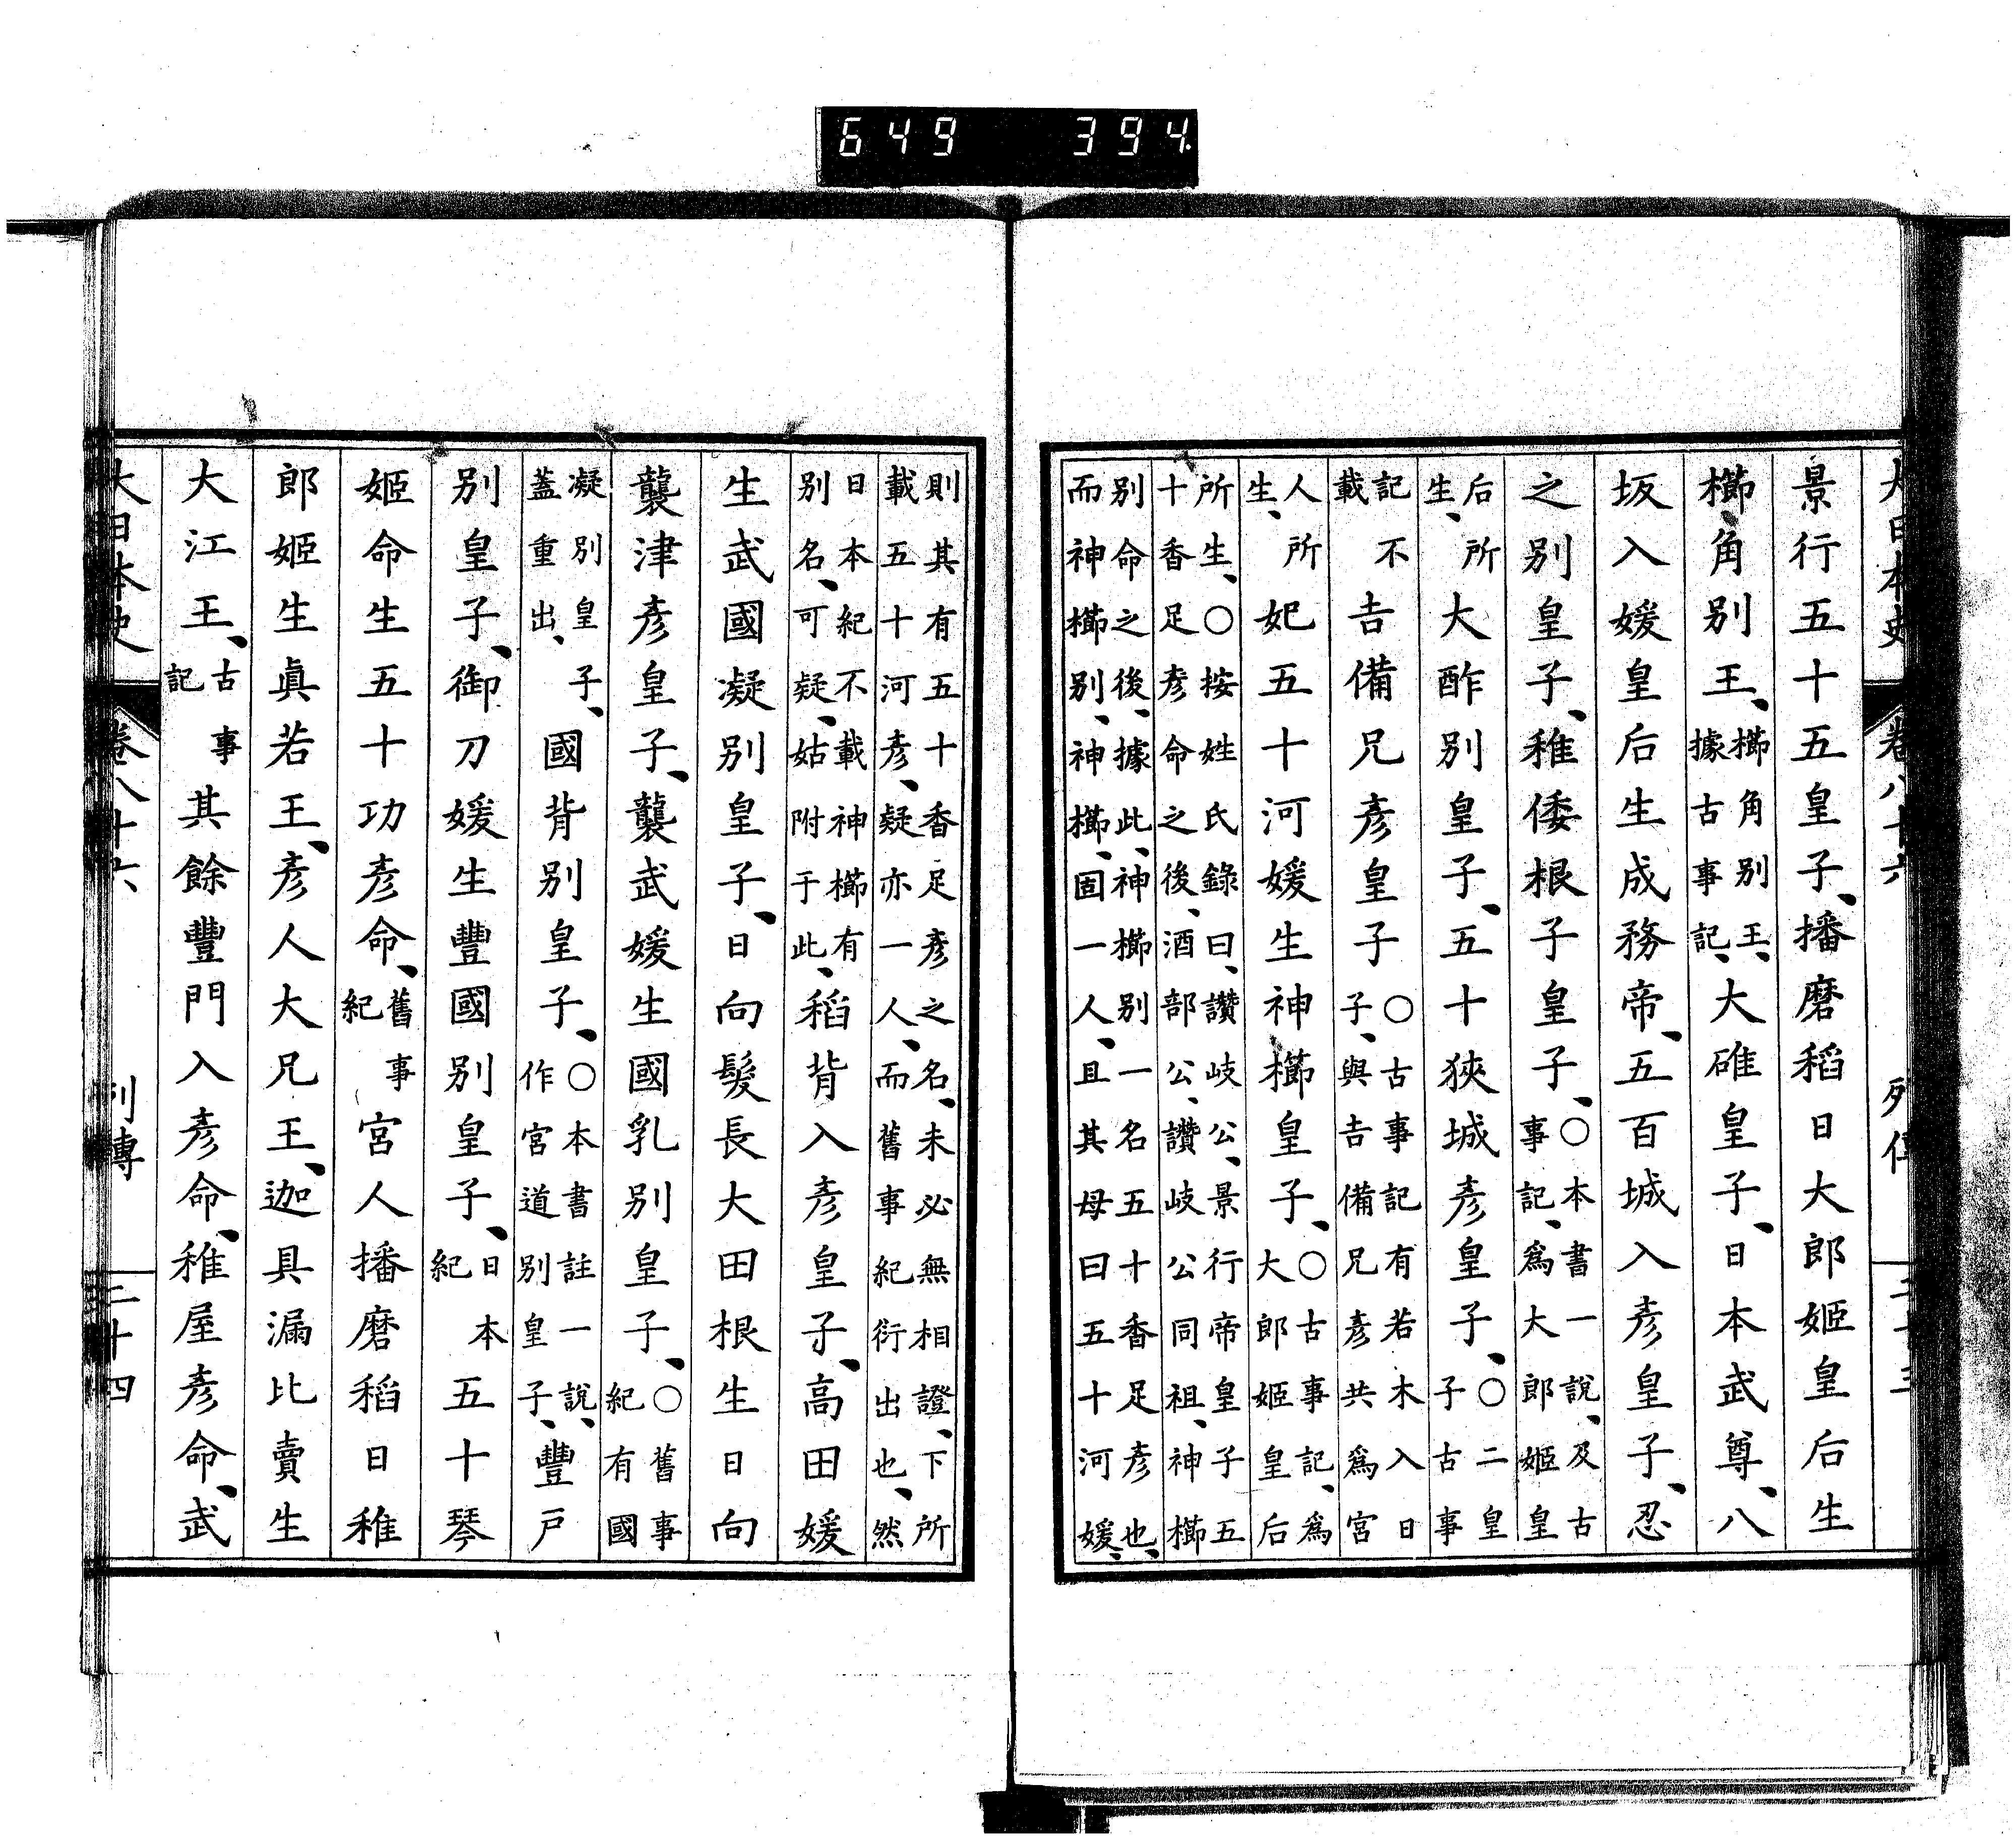 大日本史 卷八十六 列傳 二十三
景行五十五皇子、播磨稻日大郎姬皇后生
櫛、角別王、櫛角別王、據古事記、大碓皇子、日本武尊、八
坂入媛皇后生成務帝、五百城入彥皇子、忍
之別皇子、稚倭根子皇子、○本書一說、及古事記、爲大郎姬皇
后所生、大酢別皇子、五十狹城彥皇子、○二皇子古事
記不載吉備兄彥皇子○古事記有若木入日子、與吉備兄彥共爲宮
人所生、妃五十河媛生神櫛皇子、○古事記、爲大郎姬皇后
所生、○按姓氏錄曰、讚岐公、景行帝皇子五十香足彥命之後、酒部公、讚岐公同祖、神櫛
別命之後、據此、神櫛別一名五十香足彥也、而神櫛別、神櫛、固一人、且其母曰五十河媛、
則其有五十香足彥之名、未必無相證、下所載五十河彥、疑亦一人、而舊事紀衍出也、然
日本紀不載神櫛有別名、可疑、姑附于此、稻背入彥皇子、高田媛
生武國凝別皇子、日向髮長大田根生日向
襲津彥皇子、襲武媛生國乳別皇子、○舊事紀有國
凝別皇子、蓋重出、國背別皇子、○本書註一說、作宮道別皇子、豐戶
別皇子、御刀媛生豐國別皇子、日本紀五十琴
姬命生五十功彥命、舊事紀宮人播磨稻日稚
郎姬生眞若王、彥人大兄王、迦具漏比賣生
大江王、古事記其餘豐門入彥命、稚屋彥命、武
大日本史 卷八十六 列傳 二十四
649 394